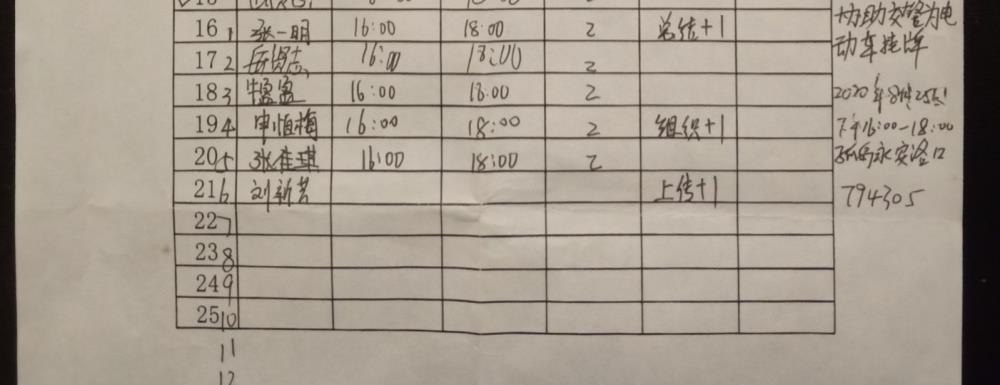 16 1 张一明 16:00 18:00 2 总结+1
17 2 岳贤志 16:00 18:00 2
18 3 牛蛋蛋 16:00 18:00 2
19 4 申恒梅 16:00 18:00 2 组织+1
20 5 张佳琪 16:00 18:00 2
21 6 刘新芳 上传+1
22 7
23 8
24 9
25 10
11
12
协助交警为电
动车挂牌
2020年8月25日
下午16:00-18:00
永安路口
794305